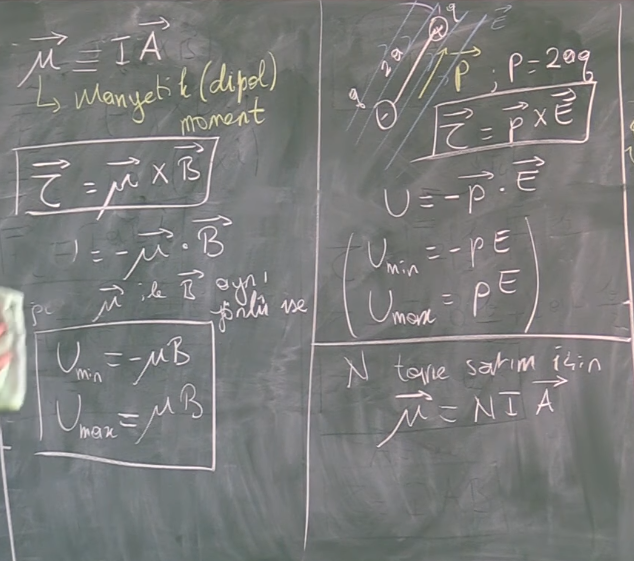 μ⃗ ≡ I A⃗
↳ Manyetik (dipol)
moment
τ⃗ = μ⃗ × B⃗
= -μ⃗ · B⃗
μ⃗ ile B⃗ aynı
yönlü ise
U_min = -μB
U_max = μB
q
E⃗
2a
q
p⃗ ; p = 2aq
τ⃗ = p⃗ × E⃗
U = -p⃗ · E⃗
U_min = -pE
U_max = pE
N tane sarım için
μ⃗ = N I A⃗